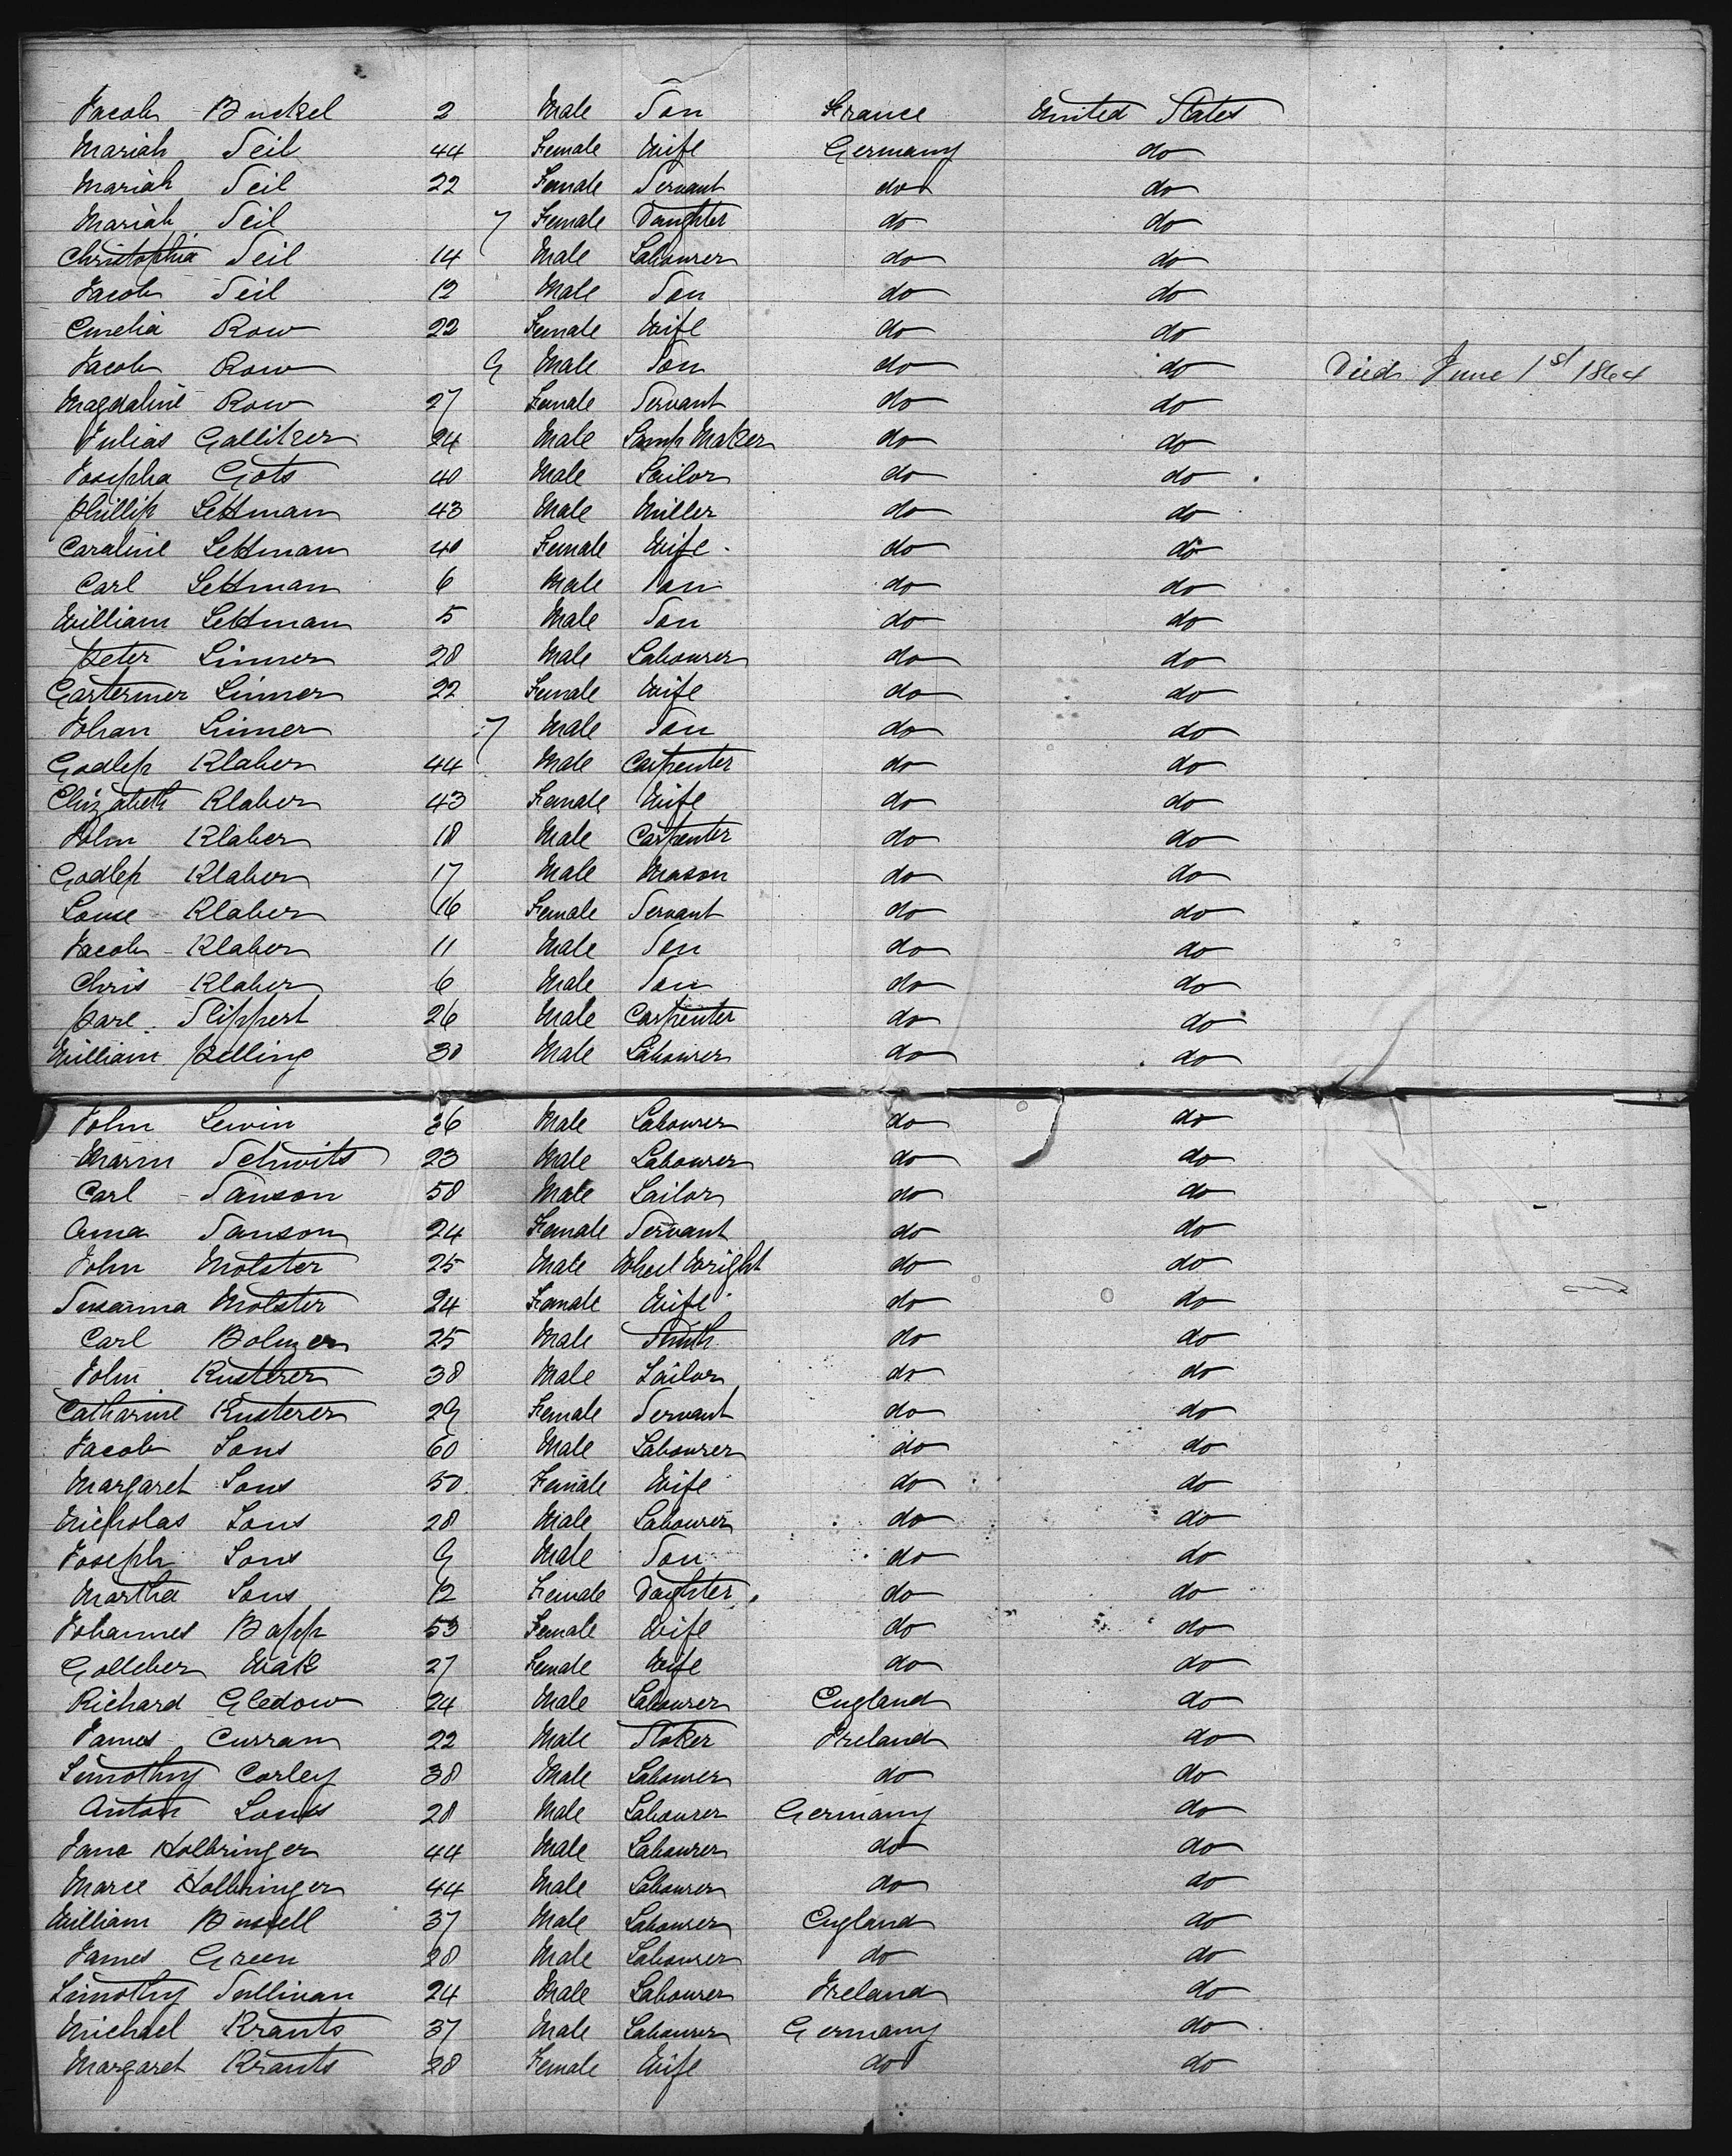 Jacob Buckel 2 Male Son France United States
Mariah Seil 44 Female Wife Germany do
Mariah Seil 22 Female Servant do do
Mariah Seil 7 Female Daughter do do
Christophia Seil 14 Male Labourer do do
Jacob Seil 12 Male Son do do
Emelia Row 22 Female Wife do do
Jacob Row 9 Male Son do do Died June 1st 1864
Magdaline Row 27 Female Servant do do
Julias Gallitzer 24 Male Lamp Maker do do
Josepha Gots 40 Male Tailor do do
Phillip Lettman 43 Male Miller do do
Caraline Lettman 40 Female Wife do do
Carl Lettman 6 Male Son do do
William Lettman 5 Male Son do do
Peter Linner 28 Male Labourer do do
Gartermer Linner 22 Female Wife do do
Johan Linner 7 Male Son do do
Godlep Klaber 44 Male Carpenter do do
Elizabeth Klaber 43 Female Wife do do
John Klaber 18 Male Carpenter do do
Godlep Klaber 17 Male Mason do do
Louse Klaber 16 Female Servant do do
Jacob Klaber 11 Male Son do do
Chris Klaber 6 Male Son do do
Parl Slippert 26 Male Carpenter do do
William Pelling 30 Male Labourer do do
John Lewin 36 Male Labourer do do
Marm Schwits 23 Male Labourer do do
Carl Sanson 58 Male Tailor do do
Anna Sanson 24 Female Servant do do
John Molster 25 Male Wheel Wright do do
Susanna Molster 24 Female Wife do do
Carl Bolnzer 25 Male Smith do do
John Kusterer 38 Male Tailor do do
Catharine Kusterer 29 Female Servant do do
Jacob Sons 60 Male Labourer do do
Margaret Sons 50 Female Wife do do
Nicholas Sons 28 Male Labourer do do
Joseph Sons 9 Male Son do do
Martha Sons 12 Female Daghter do do
Johannes Bapp 53 Female Wife do do
Golleber Wak 27 Female Wife do do
Richard Gledow 24 Male Labourer England do
James Curran 22 Male Stoker Ireland do
Timothy Corley 38 Male Labourer do do
Anton Louis 28 Male Labourer Germany do
Jano Holbringer 44 Male Labourer do do
Marce Holbringer 44 Male Labourer do do
William Bussell 37 Male Labourer England do
James Green 28 Male Labourer do do
Timothy Sullivan 24 Male Labourer Ireland do
Michael Krants 37 Male Labourer Germany do
Margaret Krants 28 Female Wife do do